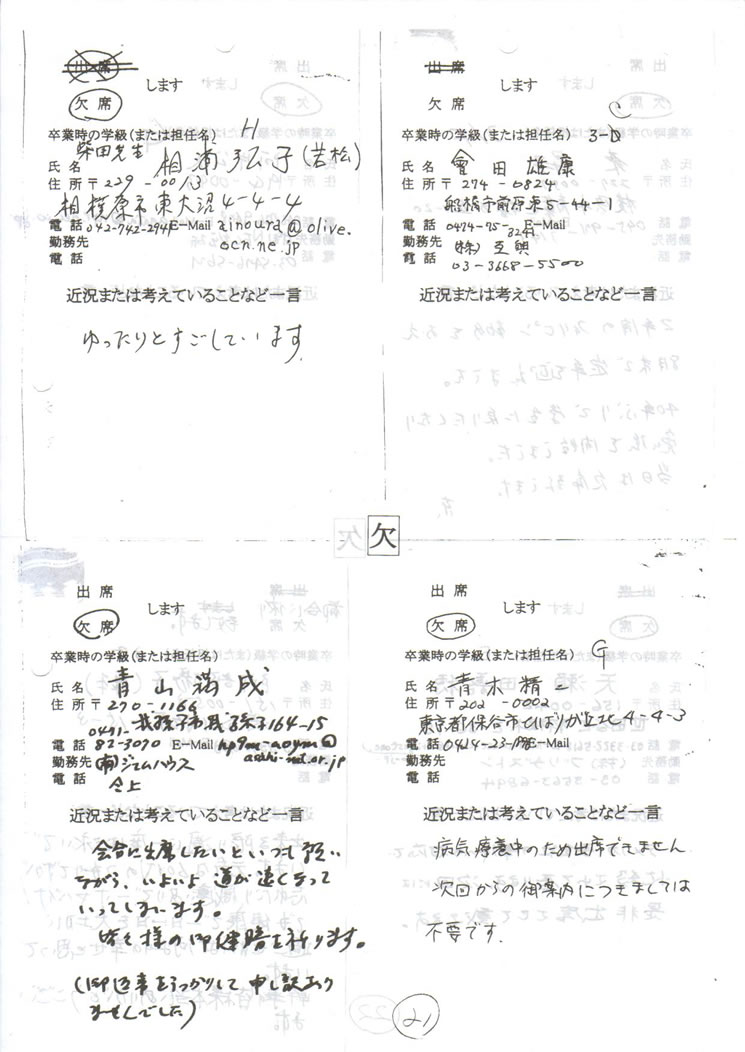 出席
します
欠席
卒業時の学級(または担任名) H
柴田先生
氏名 相浦弘子(若松)
住所〒229-0013
相模原市東大沼4-4-4
電話 042-742-2941 E-Mail ainoura@olive.
勤務先 ocn.ne.jp
電話
近況または考えていることなど一言
ゆったりとすごしています
出席
します
欠席
卒業時の学級(または担任名) 3-D
氏名 會田雄康
住所〒274-0824
船橋市前原東5-44-1
電話 0474-75- E-Mail
勤務先 (株)
電話 03-3668-5500
近況または考えていることなど一言
欠
出席
します
欠席
卒業時の学級(または担任名)
氏名 青山満成
住所〒270-1166
我孫子市我孫子164-15
0471-
電話 82-3070 E-Mail
勤務先 (有)ジェムハウス asahi-net.or.jp
電話 仝上
近況または考えていることなど一言
会合に出席したいといつも願い
ながら、いよいよ道が遠くなって
いってしまいます。
皆々様の御健勝を祈ります。
(御返事をうっかりして申し訳あり
ませんでした)
出席
します
欠席
卒業時の学級(または担任名) G
氏名 青木精二
住所〒202-0002
東京都保谷市ひばりが丘北4-4-3
電話 0424-23- E-Mail
勤務先
電話
近況または考えていることなど一言
病気療養中のため出席できません
次回からの御案内につきましては
不要です.
21